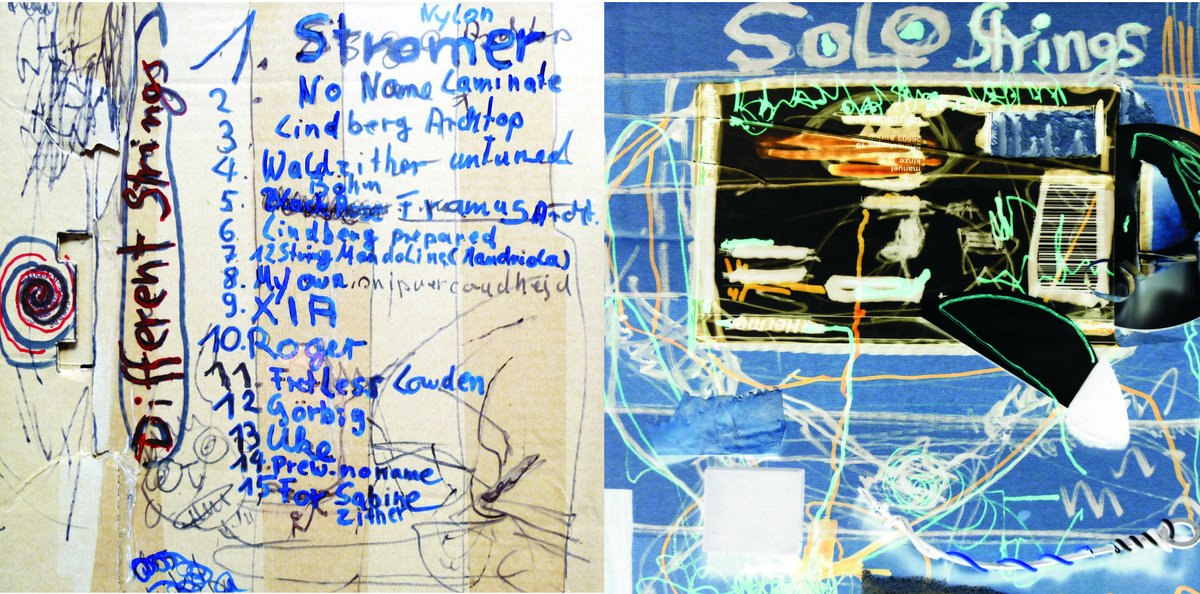 Different Strings
Nylon
1. Stromer
2 No Name Laminate
3 Lindberg Archtop
4. Waldzither untuned
Böhm
5. Framus Archt.
6 Lindberg prepared
7 12 String Mandoline (Mandriola)
8. My own
9. XIA
10. Roger
11. Fretless Lowden
12 Görbig
13 Uke
14. Prew. noname
15 For Sabine
Zither
SoLo Strings
manuel
kinze